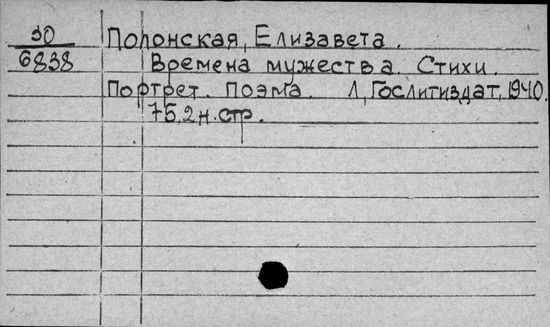 30 Полонская, Елизавета.
6838 Времена мужества. Стихи.
Портрет. Поэма. Л, Гослитиздат, 1940.
75,2 н. стр.